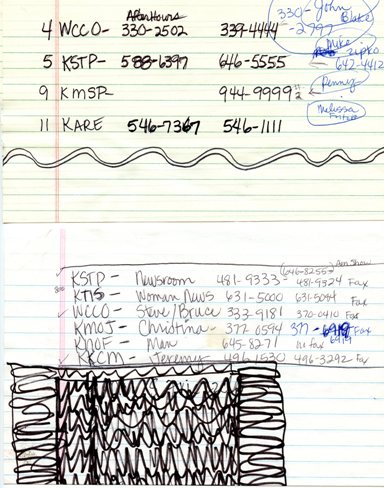 After Hours 330- John Blake
4 WCCO- 330-2502 339-4444 -2797
Mike zipko
5 KSTP- 588-6397 646-5555 642-4412
9 KMSP 944-9999 Penney
11 KARE 546-7367 546-1111 Melissa
(646-8255) Am Show
KSTP- Newsroom 481-9333- 481-9324 Fax
KTIS- Woman News 631-5000 631-5084 Fax
WCCO- Steve/Bruce 333-9181 370-0410 Fax
KMOJ- Christina- 377 0594 377- 6919 Fax
6919
KNOF- Man 645-8271 no fax
KKCM- Jeremy 496 1530 496-3292 Fax